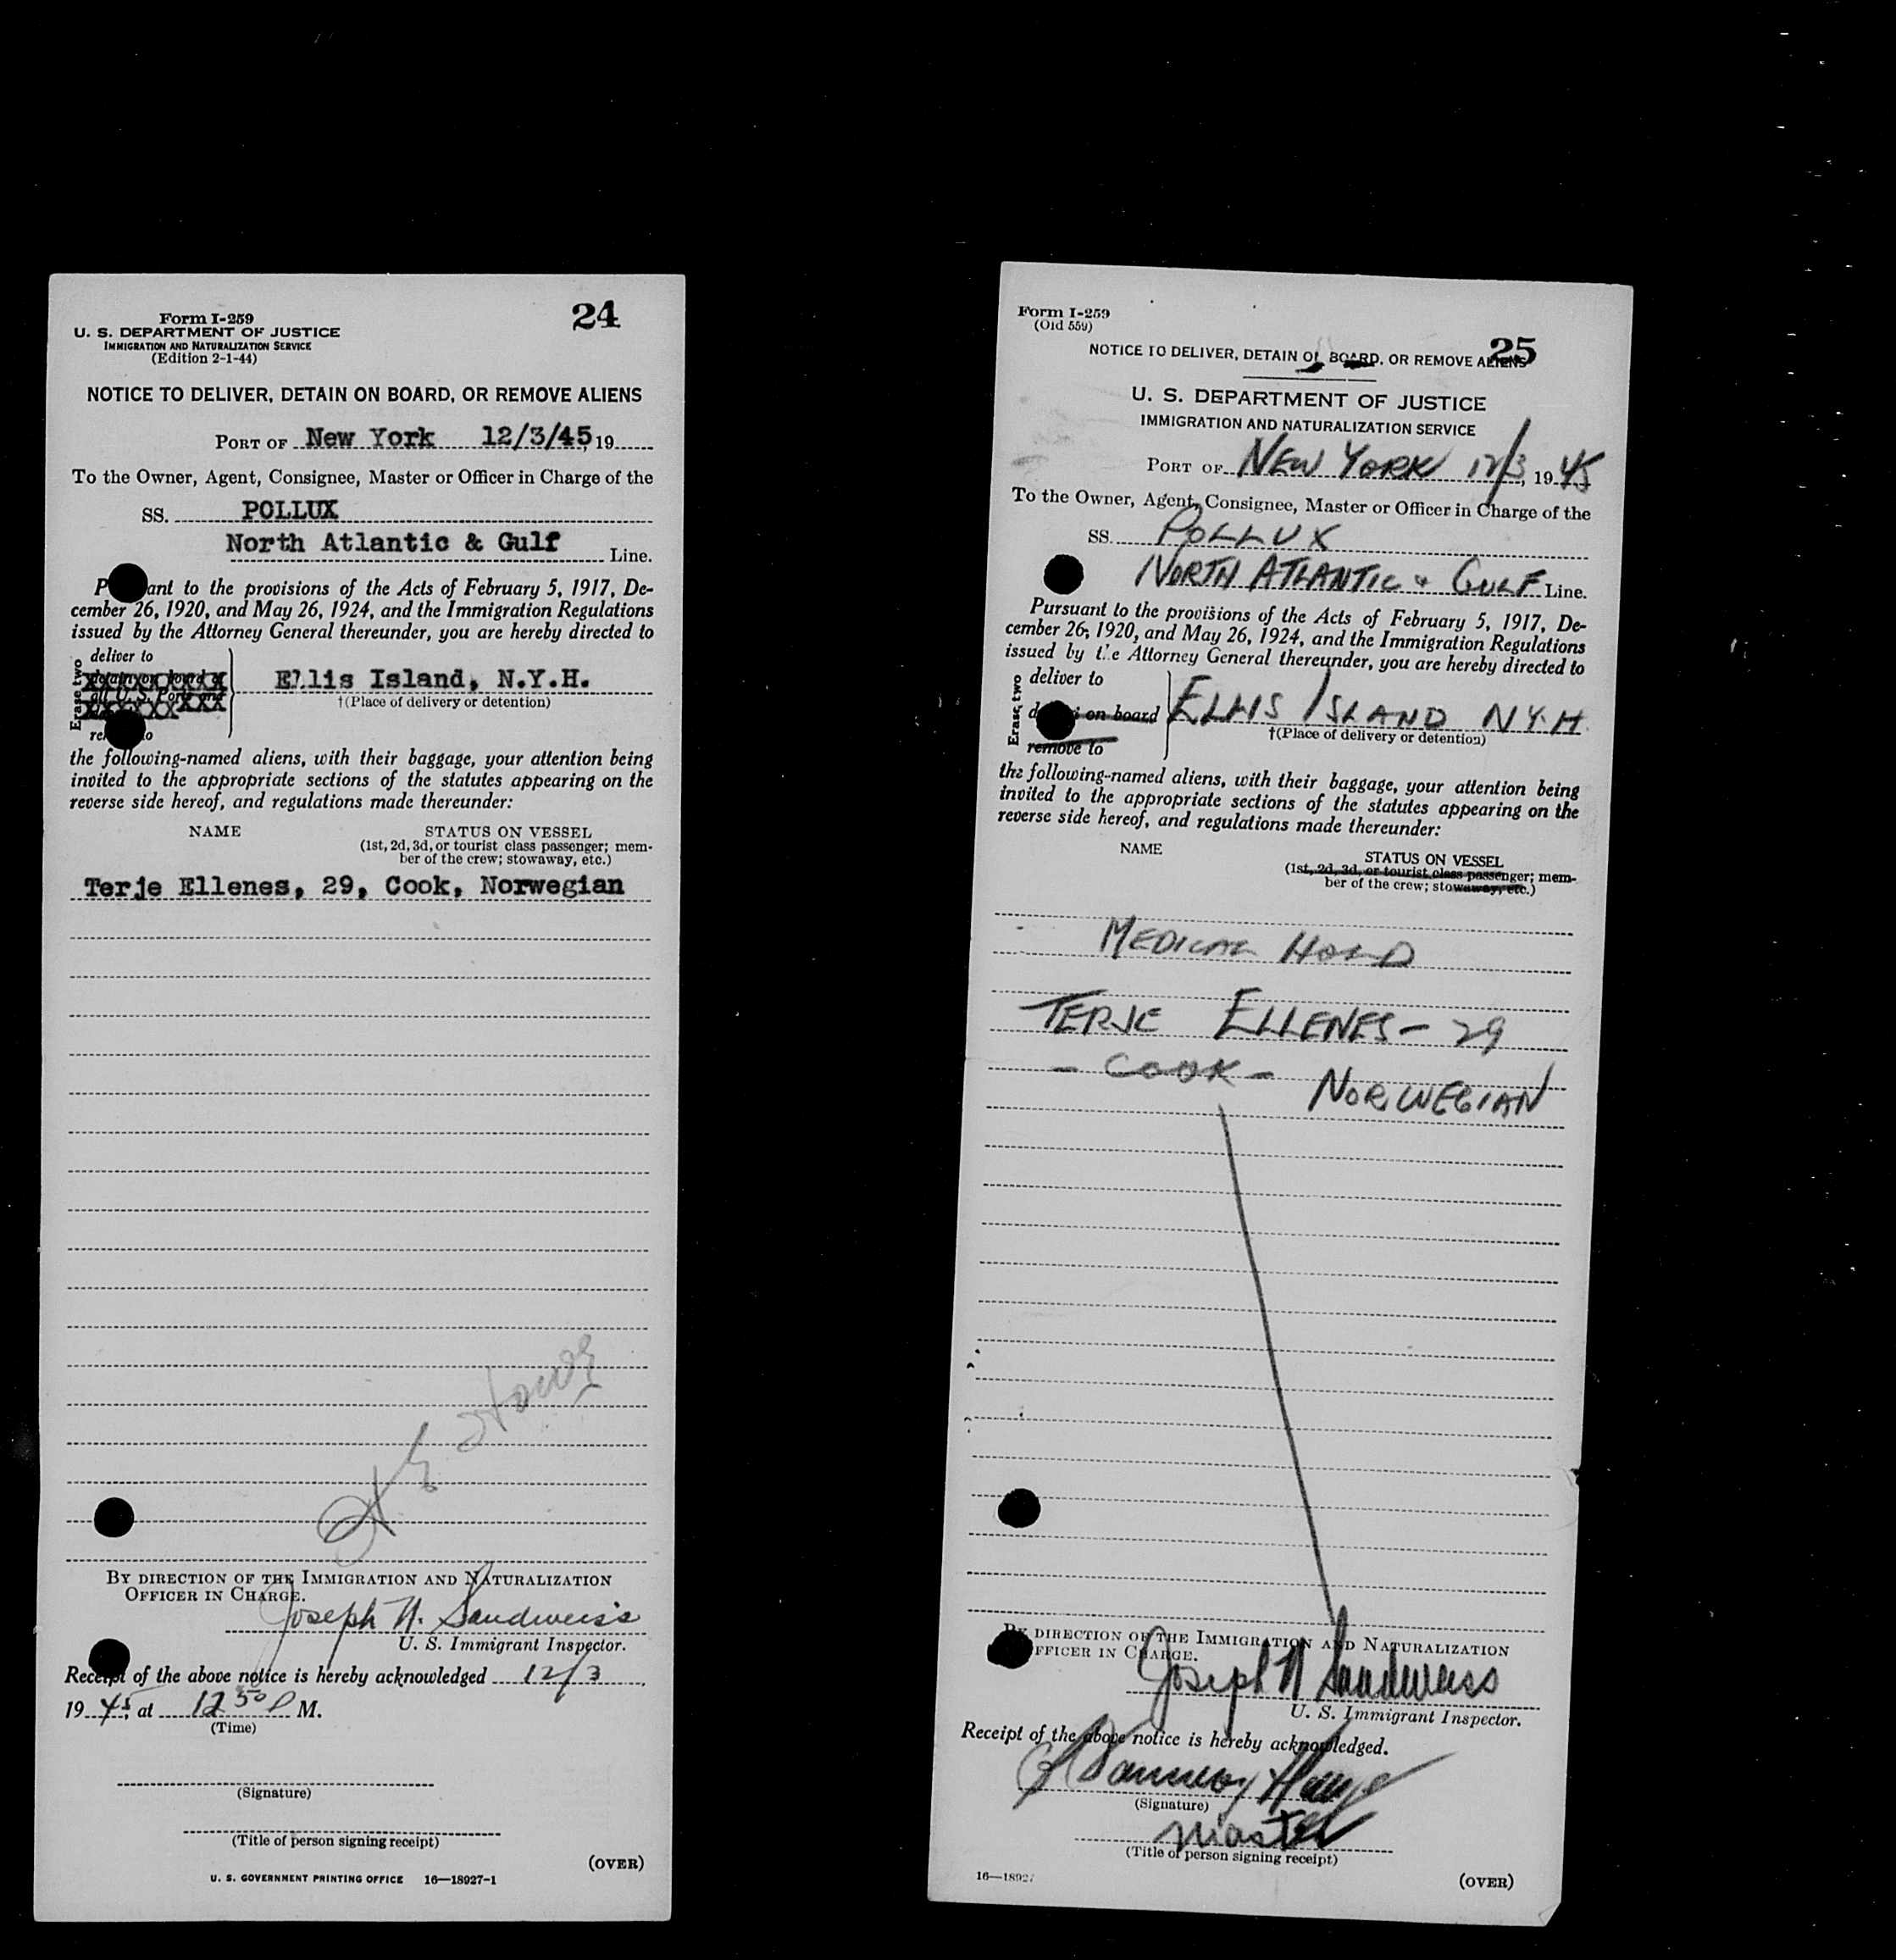 Form I-259
U. S. DEPARTMENT OF JUSTICE
IMMIGRATION AND NATURALIZATION SERVICE
(Edition 2-1-44)
24
NOTICE TO DELIVER, DETAIN ON BOARD, OR REMOVE ALIENS
PORT OF New York 12/3/45, 19
To the Owner, Agent, Consignee, Master or Officer in Charge of the
SS. POLLUX
North Atlantic & Gulf Line.
P ant to the provisions of the Acts of February 5, 1917, De-
cember 26, 1920, and May 26, 1924, and the Immigration Regulations
issued by the Attorney General thereunder, you are hereby directed to
Erase two
deliver to
all U. S. Ports and
Ellis Island, N.Y.H.
†(Place of delivery or detention)
the following-named aliens, with their baggage, your attention being
invited to the appropriate sections of the statutes appearing on the
reverse side hereof, and regulations made thereunder:
NAME STATUS ON VESSEL
(1st, 2d, 3d, or tourist class passenger; mem-
ber of the crew; stowaway, etc.)
Terje Ellenes, 29, Cook, Norwegian
BY DIRECTION OF THE IMMIGRATION AND NATURALIZATION
OFFICER IN CHARGE.
Joseph N. Sandweiss
U. S. Immigrant Inspector.
Receipt of the above notice is hereby acknowledged 12/3,
1945, at 12 50 P M.
(Time)
(Signature)
(Title of person signing receipt)
(OVER)
U. S. GOVERNMENT PRINTING OFFICE 16—18927-1
Form I-259
(Old 559)
25
NOTICE TO DELIVER, DETAIN ON BOARD, OR REMOVE ALIENS
U. S. DEPARTMENT OF JUSTICE
IMMIGRATION AND NATURALIZATION SERVICE
PORT OF NEW YORK 12/3, 1945
To the Owner, Agent, Consignee, Master or Officer in Charge of the
SS. POLLUX
NORTH ATLANTIC & GULF Line.
Pursuant to the provisions of the Acts of February 5, 1917, De-
cember 26, 1920, and May 26, 1924, and the Immigration Regulations
issued by the Attorney General thereunder, you are hereby directed to
Erase two
deliver to
on board
remove to
ELLIS ISLAND N.Y.H.
†(Place of delivery or detention)
the following-named aliens, with their baggage, your attention being
invited to the appropriate sections of the statutes appearing on the
reverse side hereof, and regulations made thereunder:
NAME STATUS ON VESSEL
(1st, 2d, 3d, or tourist class passenger; mem-
ber of the crew; stowaway, etc.)
MEDICAL HOLD
TERJE ELLENES - 29
- COOK - NORWEGIAN
BY DIRECTION OF THE IMMIGRATION AND NATURALIZATION
OFFICER IN CHARGE.
Joseph N Sandweiss
U. S. Immigrant Inspector.
Receipt of the above notice is hereby acknowledged.
(Signature)
Master
(Title of person signing receipt)
16—18927
(OVER)